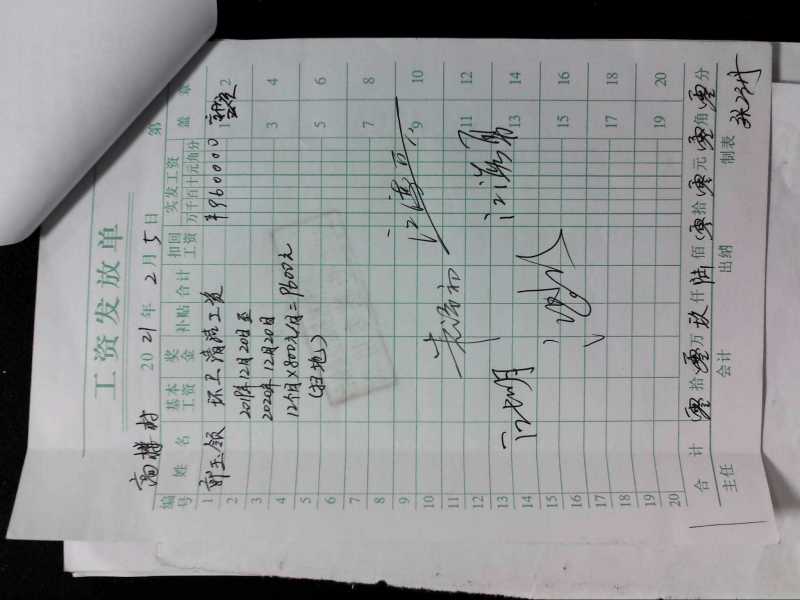 工资发放单
高楼村 2021年2月5日 第
编号 姓名 基本工资 奖金 补贴 合计 扣回工资 实发工资 万千百十元角分 盖章
1 郭玉领 环卫清洁工资 ¥960000 1 2
2 2019年12月20日至
3 2020年12月20日 3 4
4 12个月×800元/月=9600元
5 (扫地) 5 6
6
7 7 8
8
9 9 10
10
11 11 12
12
13 13 14
14
15 15 16
16
17 17 18
18
19 19 20
20
合计 零拾零万玖仟陆佰零拾零元零角零分
主任 会计 出纳 制表